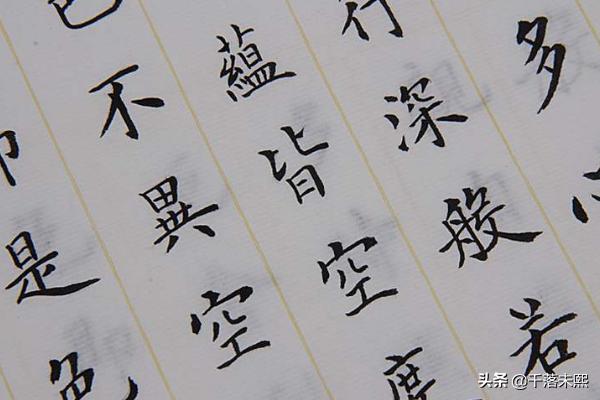 多
行深般若
蘊皆空度
色不異空
是色
头条 @千落未熙